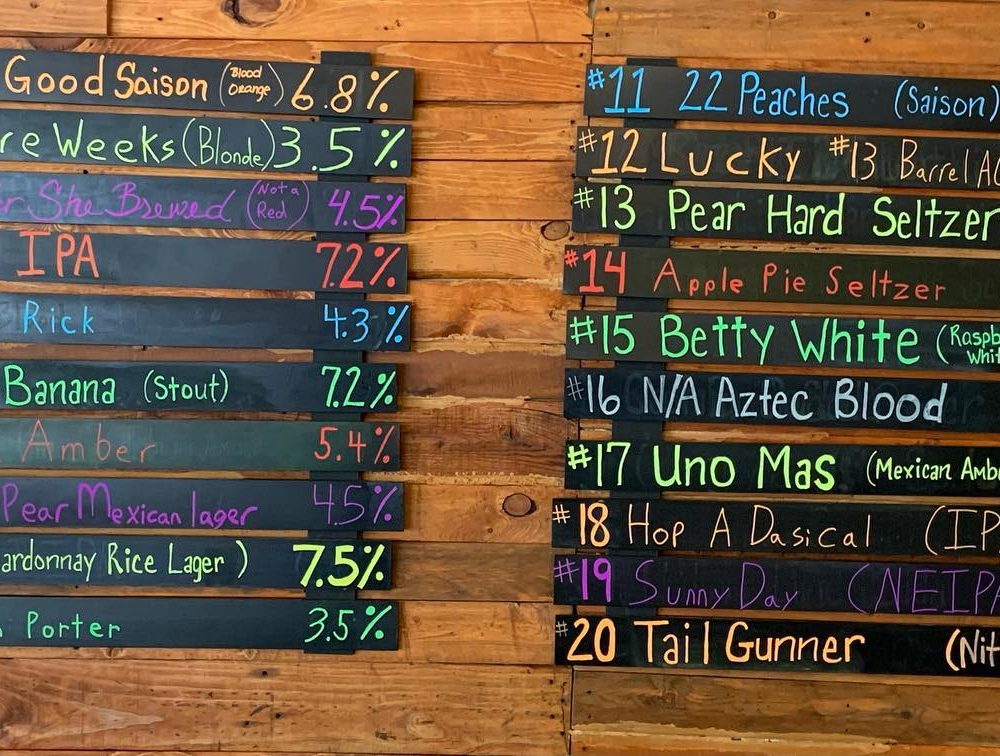 Good Saison (Blood Orange) 6.8%
re Weeks (Blonde) 3.5%
r She Brewed (Not a Red) 4.5%
IPA 7.2%
Rick 4.3%
Banana (Stout) 7.2%
Amber 5.4%
Pear Mexican lager 4.5%
ardonnay Rice Lager) 7.5%
Porter 3.5%
#11 22 Peaches (Saison)
#12 Lucky #13 Barrel A
#13 Pear Hard Seltzer
#14 Apple Pie Seltzer
#15 Betty White (Raspb Whit
#16 N/A Aztec Blood
#17 Uno Mas (Mexican Amb
#18 Hop A Dasical (IP
#19 Sunny Day (NEIPA
#20 Tail Gunner (Nit